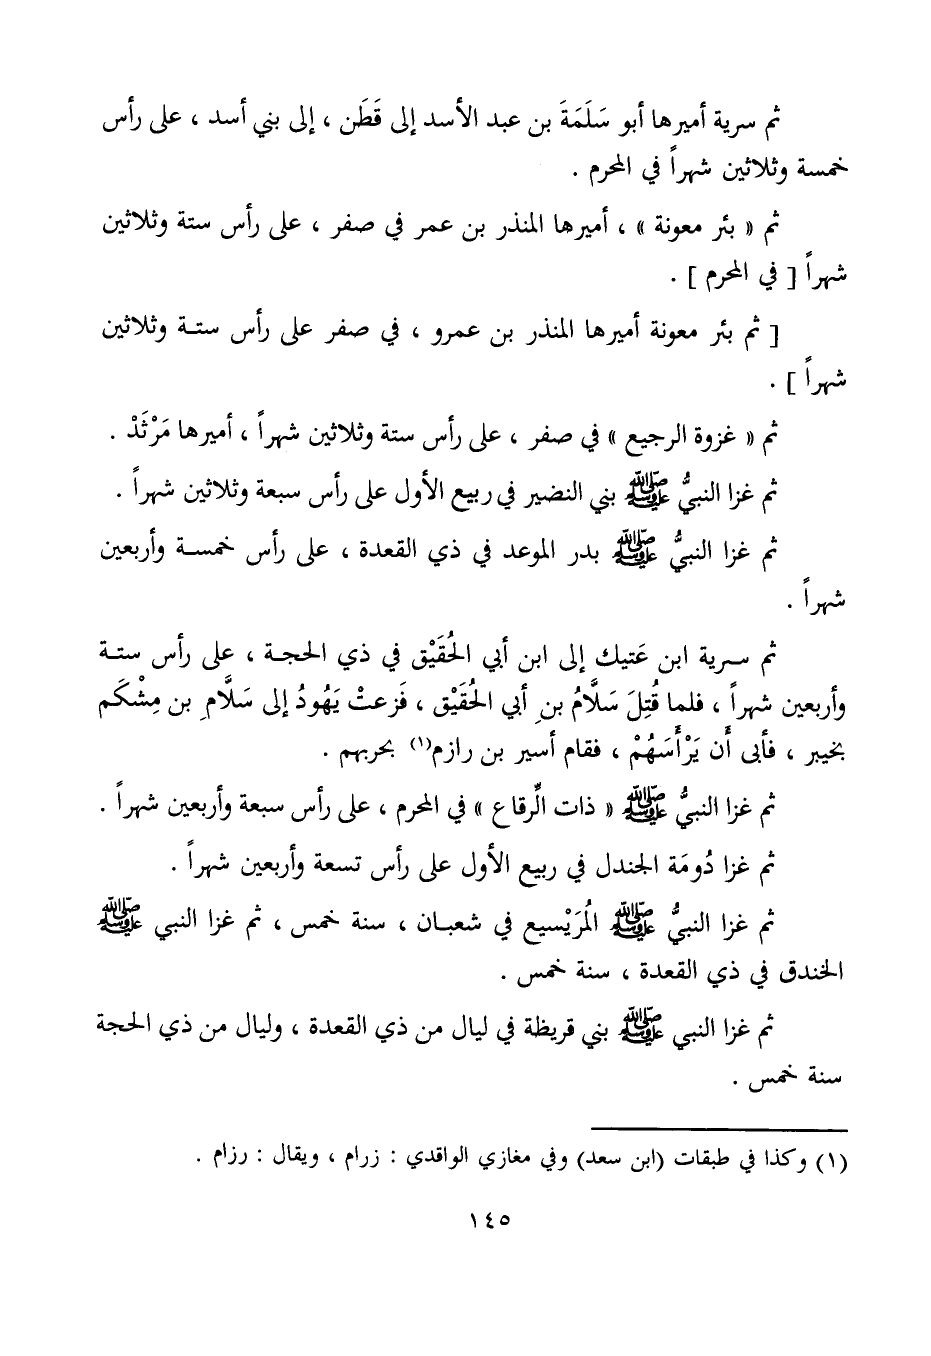 ثم سرية أميرها أبو سَلَمَةَ بن عبد الأسد إلى قَطَن ، إلى بني أسد ، على رأس
خمسة وثلاثين شهراً في المحرم .
ثم « بئر معونة » ، أميرها المنذر بن عمر في صفر ، على رأس ستة وثلاثين
شهراً [ في المحرم ] .
[ ثم بئر معونة أميرها المنذر بن عمرو ، في صفر على رأس ستة وثلاثين
شهراً ] .
ثم « غزوة الرجيع » في صفر ، على رأس ستة وثلاثين شهراً ، أميرها مَرْثَدْ .
ثم غزا النبيُّ ﷺ بني النضير في ربيع الأول على رأس سبعة وثلاثين شهراً .
ثم غزا النبيُّ ﷺ بدر الموعد في ذي القعدة ، على رأس خمسة وأربعين
شهراً .
ثم سرية ابن عَتيك إلى ابن أبي الحُقَيْق في ذي الحجة ، على رأس ستة
وأربعين شهراً ، فلما قُتِلَ سَلَّامُ بنِ أبي الحُقَيْق ، فَزعتْ يَهُودُ إلى سَلَّامِ بن مِشْكَم
بخيبر ، فأبى أَن يَرْأَسَهُمْ ، فقام أسير بن رازم(١) بحربهم .
ثم غزا النبيُّ ﷺ « ذات الرِّقاع » في المحرم ، على رأس سبعة وأربعين شهراً .
ثم غزا دُومَة الجندل في ربيع الأول على رأس تسعة وأربعين شهراً .
ثم غزا النبيُّ ﷺ المُرَيْسيع في شعبان ، سنة خمس ، ثم غزا النبي ﷺ
الخندق في ذي القعدة ، سنة خمس .
ثم غزا النبي ﷺ بني قريظة في ليال من ذي القعدة ، وليال من ذي الحجة
سنة خمس .
(١) وكذا في طبقات (ابن سعد) وفي مغازي الواقدي : زرام ، ويقال : رزام .
١٤٥